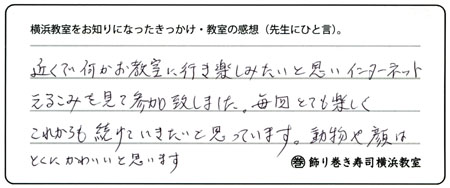 横浜教室をお知りになったきっかけ・教室の感想（先生にひと言）。
近くで何かお教室に行き楽しみたいと思いインターネット
えるこみを見て参加致しました。毎回とても楽しく
これからも続けていきたいと思っています。動物や顔は
とくにかわいいと思います
巻 飾り巻き寿司横浜教室